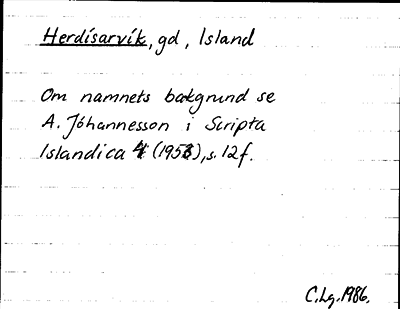 Herdísarvík, gd, Island
Om namnets bakgrund se
A. Jóhannesson i Scripta
Islandica 4 (1953), s. 12 f.
C.Lg. 1986.